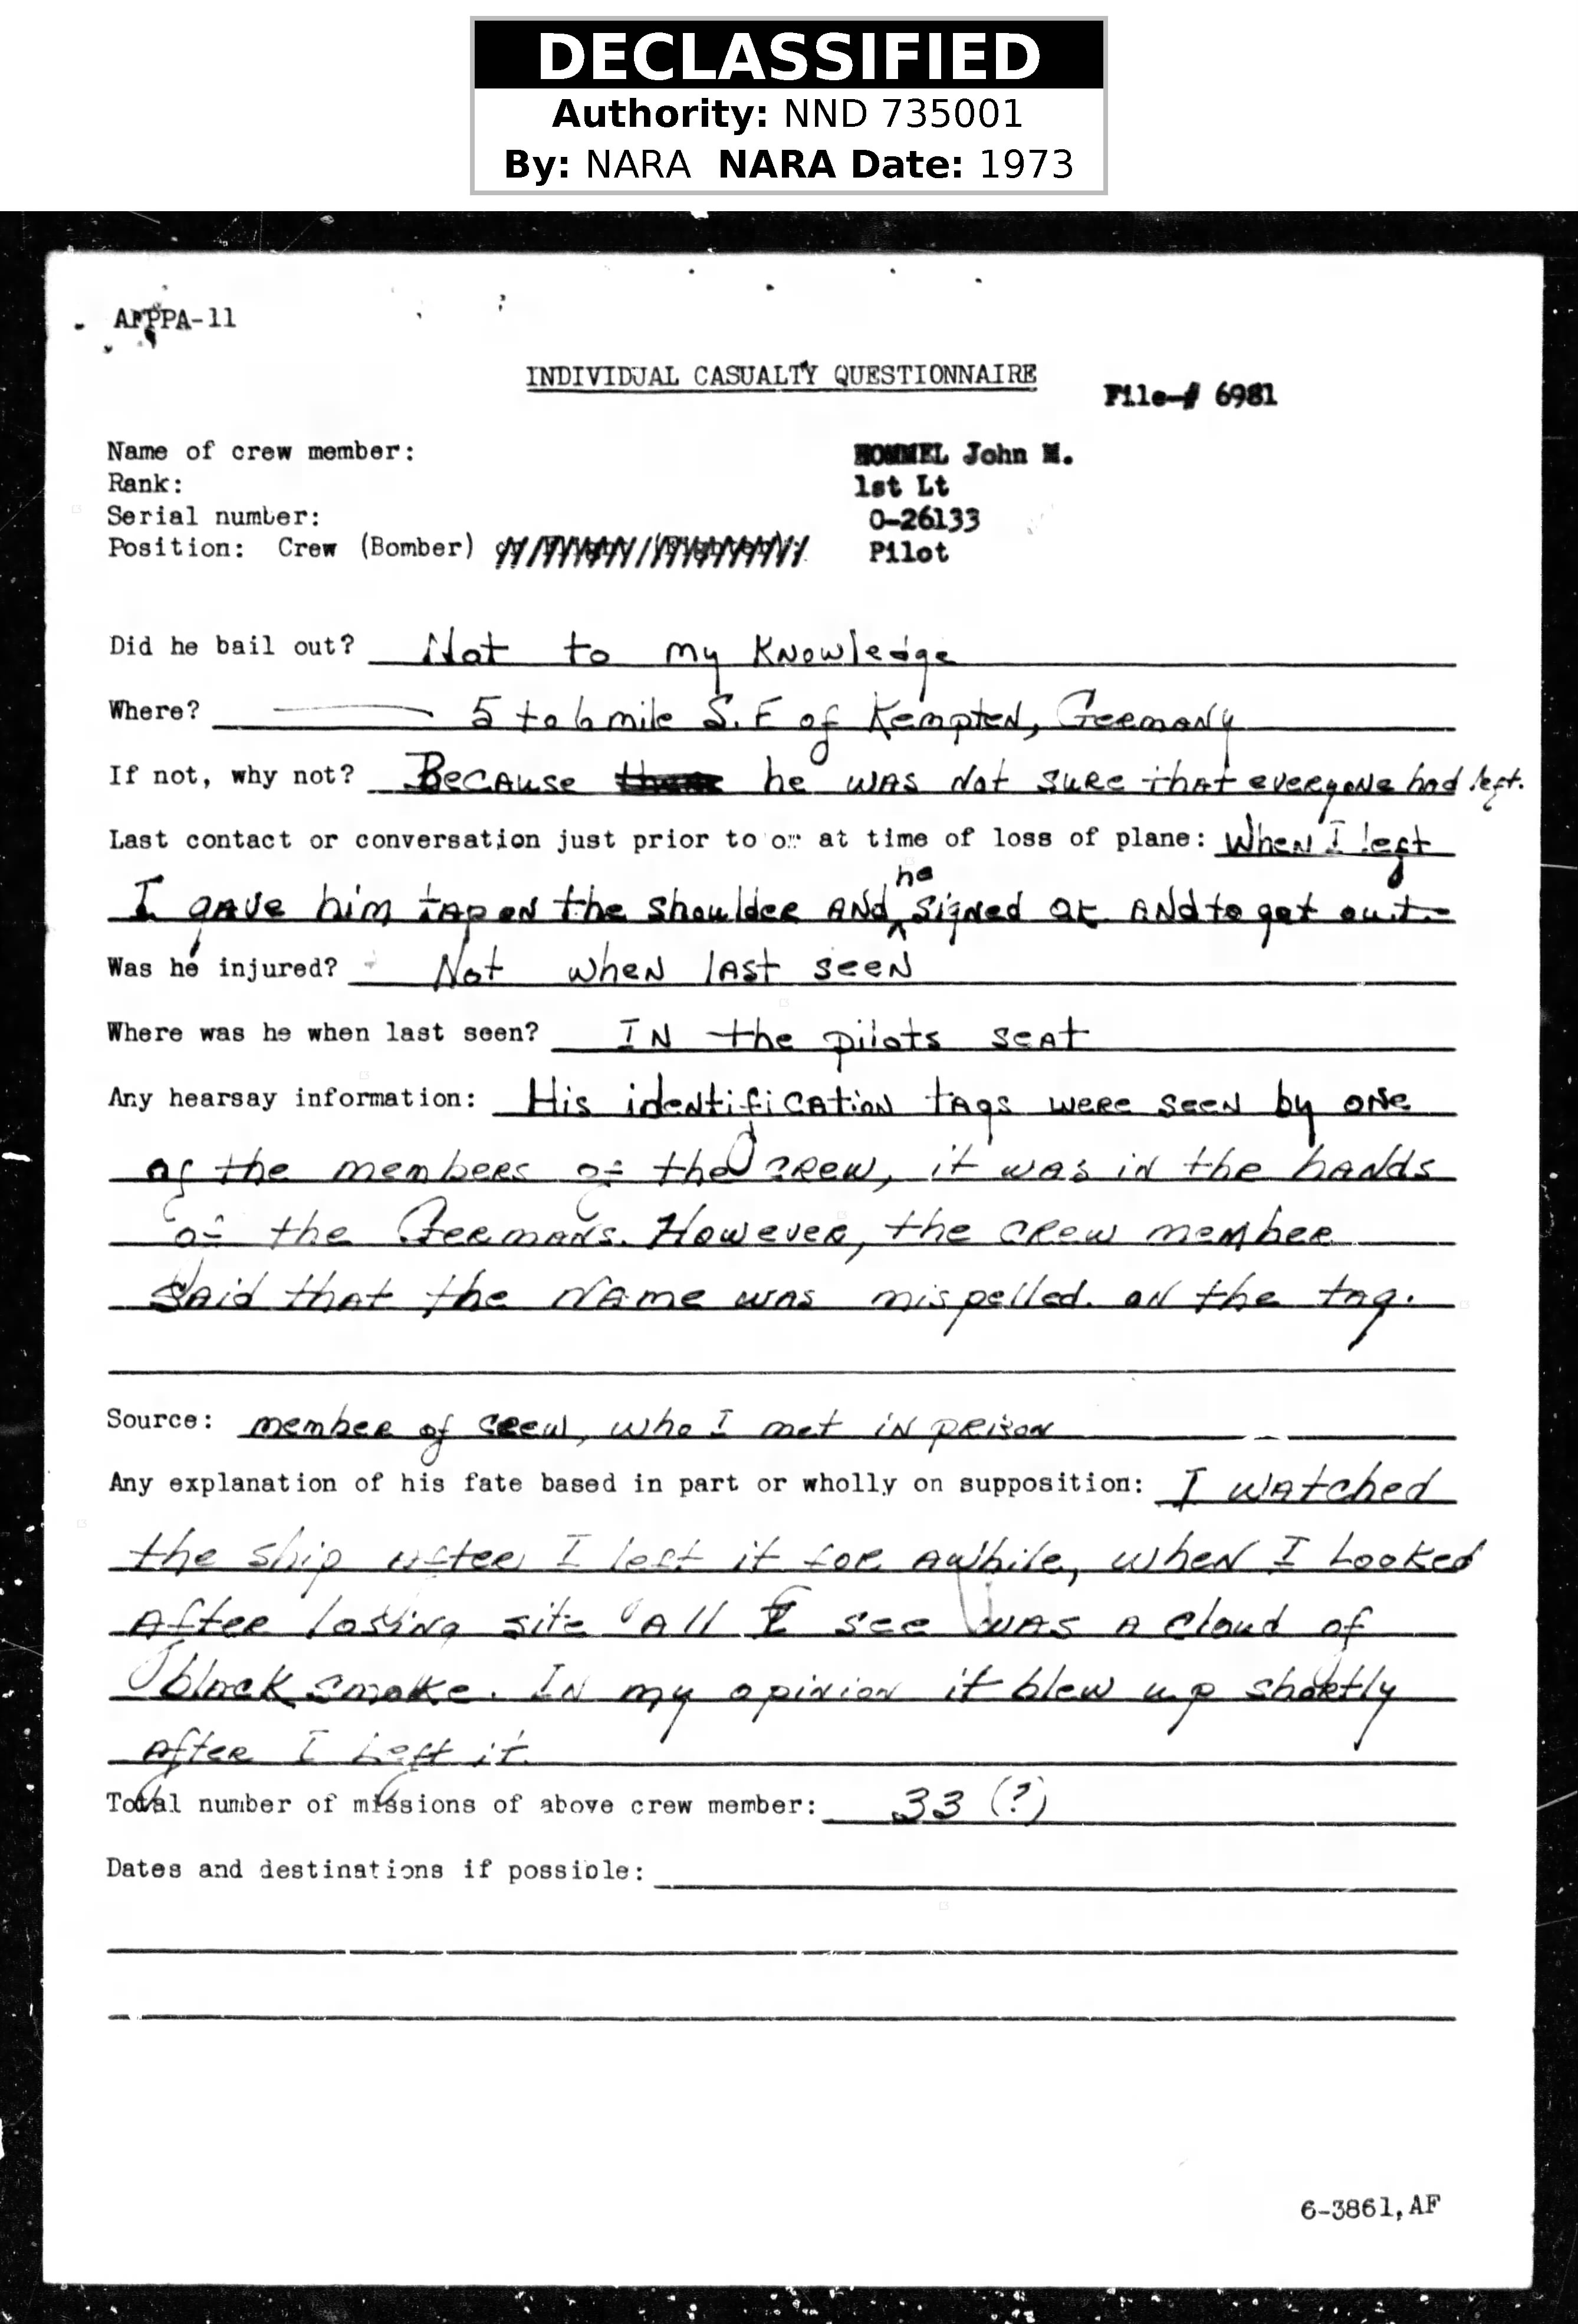 DECLASSIFIED
Authority: NND 735001
By: NARA NARA Date: 1973
AFPPA-11
INDIVIDUAL CASUALTY QUESTIONNAIRE
File-# 6981
Name of crew member: HOMMEL John M.
Rank: 1st Lt
Serial number: O-26133
Position: Crew (Bomber) Pilot
Did he bail out? Not to my Knowledge
Where? 5 to 6 mile S.E of Kempten, Germany
If not, why not? Because he was not sure that everyone had left.
Last contact or conversation just prior to or at time of loss of plane: When I left
I gave him tap on the shoulder and he signed ok and to get out.
Was he injured? Not when last seen
Where was he when last seen? In the pilots seat
Any hearsay information: His identification tags were seen by one
of the members of the crew, it was in the hands
of the Germans. However, the crew member
said that the name was mispelled. on the tag.
Source: member of crew, who I met in prison
Any explanation of his fate based in part or wholly on supposition: I watched
the ship after I left it for awhile, when I looked
after losing site all I see was a cloud of
black smoke. In my opinion it blew up shortly
after I left it.
Total number of missions of above crew member: 33 (?)
Dates and destinations if possible:
6-3861, AF